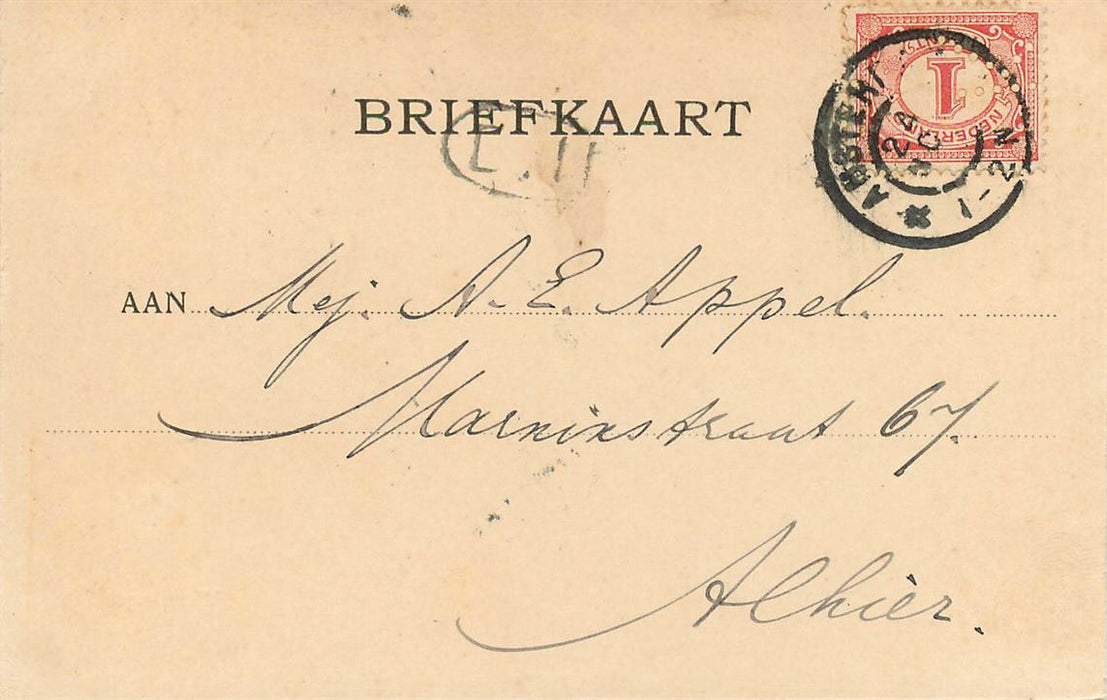 BRIEFKAART
1
NEDERLAND
AMSTERD
24
1-2N
L.11
AAN Mej. A. E. Appel.
Marnixstraat 67.
Alhier.